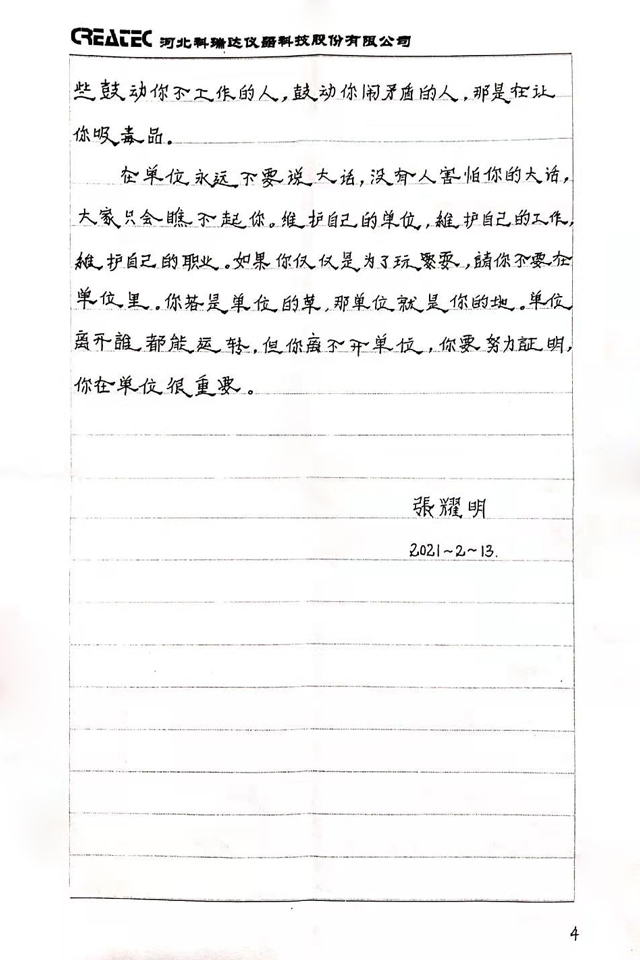 CREATEC 河北科瑞达仪器科技股份有限公司
些鼓动你不工作的人，鼓动你闹矛盾的人，那是在让
你吸毒品。
在单位永远不要说大话，没有人害怕你的大话，
大家只会瞧不起你。维护自己的单位，維护自己的工作，
維护自己的职业。如果你仅仅是为了玩耍耍，請你不要在
单位里。你若是单位的草，那单位就是你的地。单位
离开誰都能运转，但你离不开单位，你要努力証明，
你在单位很重要。
張耀明
2021~2~13.
4